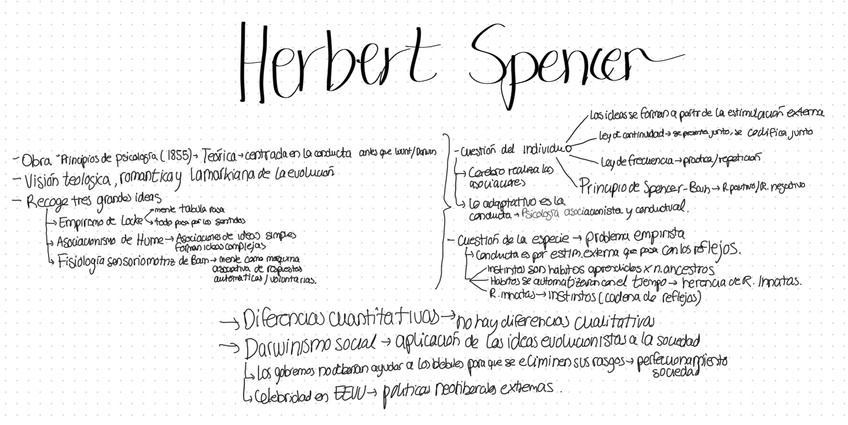 Herbert Spencer
- Obra "Principios de psicología (1855) → Teórica → centrada en la conducta antes que Wundt/Darwin
- Visión teológica, romantica y lamarkiana de la evolución
- Recoge tres grandes ideas
↳ Empirismo de Locke → mente tabula rasa
→ todo pasa por los sentidos
↳ Asociacionismo de Hume → Asociaciones de ideas simples
forman ideas complejas
↳ Fisiología sensoriomotriz de Bain → mente como maquina
asociativa de respuestas
automaticas/voluntarias.
- Cuestión del individuo
Las ideas se forman a partir de la estimulación externa
Ley de continuidad → se presenta junto, se codifica junto
Ley de frecuencia → practica/repetición
Principio de Spencer-Bain → R. positivo/R. negativo
↳ Cerebro realiza las
asociaciones
↳ Lo adaptativo es la
conducta → Psicología asociacionista y conductual.
- Cuestión de la especie → problema empirista
↳ Conducta es por estim. externa que pasa con los reflejos.
Instintos son habitos aprendidos x n. ancestros
Habitos se automatizaran con el tiempo → herencia de R. Innatas.
R. innatas → instintos (cadena de reflejos)
→ Diferencias cuantitativas → no hay diferencias cualitativas
→ Darwinismo social → aplicación de las ideas evolucionistas a la sociedad
↳ Los gobiernos no deberian ayudar a los debiles para que se eliminen sus rasgos → perfeccionamiento
sociedad
↳ Celebridad en EEUU → politicas neoliberales extremas.